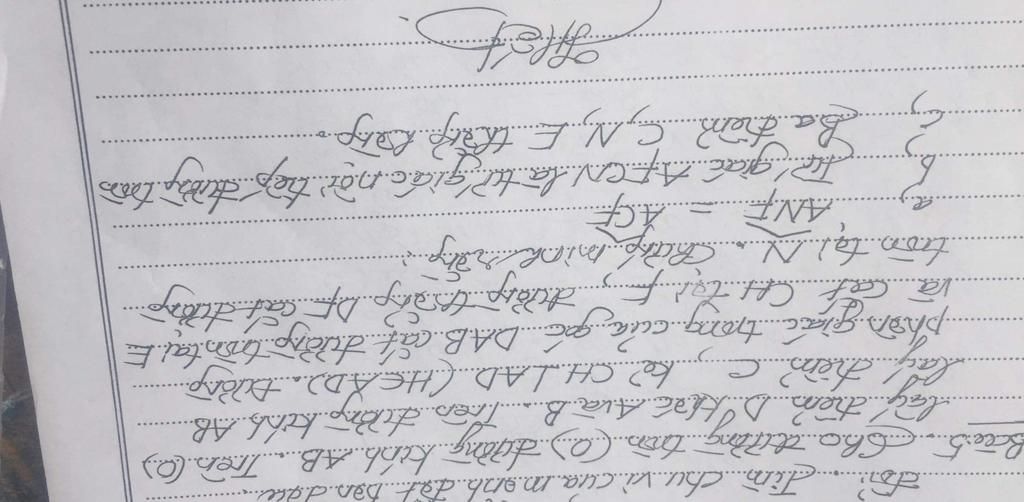 đổi. Tìm chu vi của mảnh đất ban đầu.
Bài 5. Cho đường tròn (O) đường kính AB. Trên (O)
lấy điểm D khác A và B. Trên đường kính AB
lấy điểm C, kẻ CH ⊥ AD (H ∈ AD). Đường
phân giác trong của góc DAB cắt đường tròn tại E
và cắt CH tại F, đường thẳng DF cắt đường
tròn tại N. Chứng minh rằng:
a, ANF = ACF
b, Tứ giác AFCN là tứ giác nội tiếp đường tròn
c, Ba điểm C, N, E thẳng hàng.
Hết